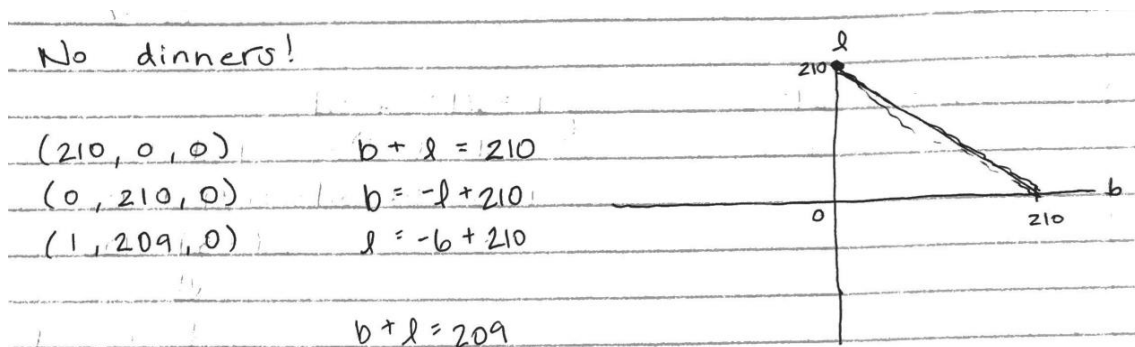 No dinners!
(210, 0, 0)
(0, 210, 0)
(1, 209, 0)
b + l = 210
b = -l + 210
l = -b + 210
b + l = 209
l
210
b
0
210